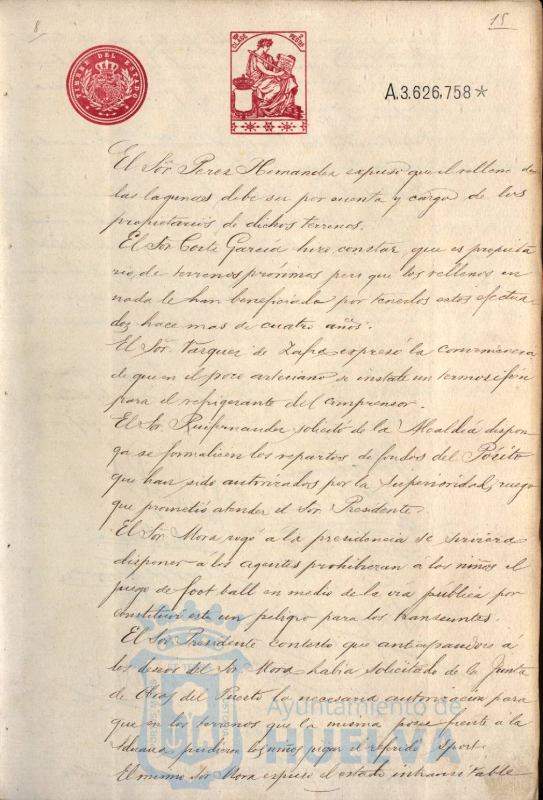 8
15
TIMBRE DEL ESTADO
CLASE
A.3.626,758*
El Sor. Perez Hernandez expuso que el relleno de
las lagunas debe ser por cuenta y cargo de los
propietarios de dichos terrenos.
El Sor Corté García hizo constar, que es propieta
rio de terrenos próximos pero que los rellenos en
nada le han beneficiado por tenerlos estos efectua
dos hace mas de cuatro años.
El Sor. Vazquez de Zafra expresó la conveniencia
de que en el pozo artesiano se instale un termosifón
para el refrigerante del compresor.
El Sor. Ruifernandez solicitó de la Alcaldia dispon
ga se formalicen los repartos de fondos del Pósito
que han sido autorizados por la Superioridad, ruego
que prometió atender el Sor. Presidente.
El Sor. Mora rogó á la presidencia se sirviera
disponer á los agentes prohibieran á los niños el
juego de foot ball en medio de la via pública por
constituir este un peligro para los transeuntes.
El Sor Presidente contestó que anticipandose á
los deseos del Sr. Mora habia solicitado de la Junta
de Obras del Puerto la necesaria autorización para
que en los terrenos que la misma posee frente á la
Aduana pudieran los niños jugar el referido sport.
El mismo Sor Mora expuso el estado intransitable
Ayuntamiento de
HUELVA